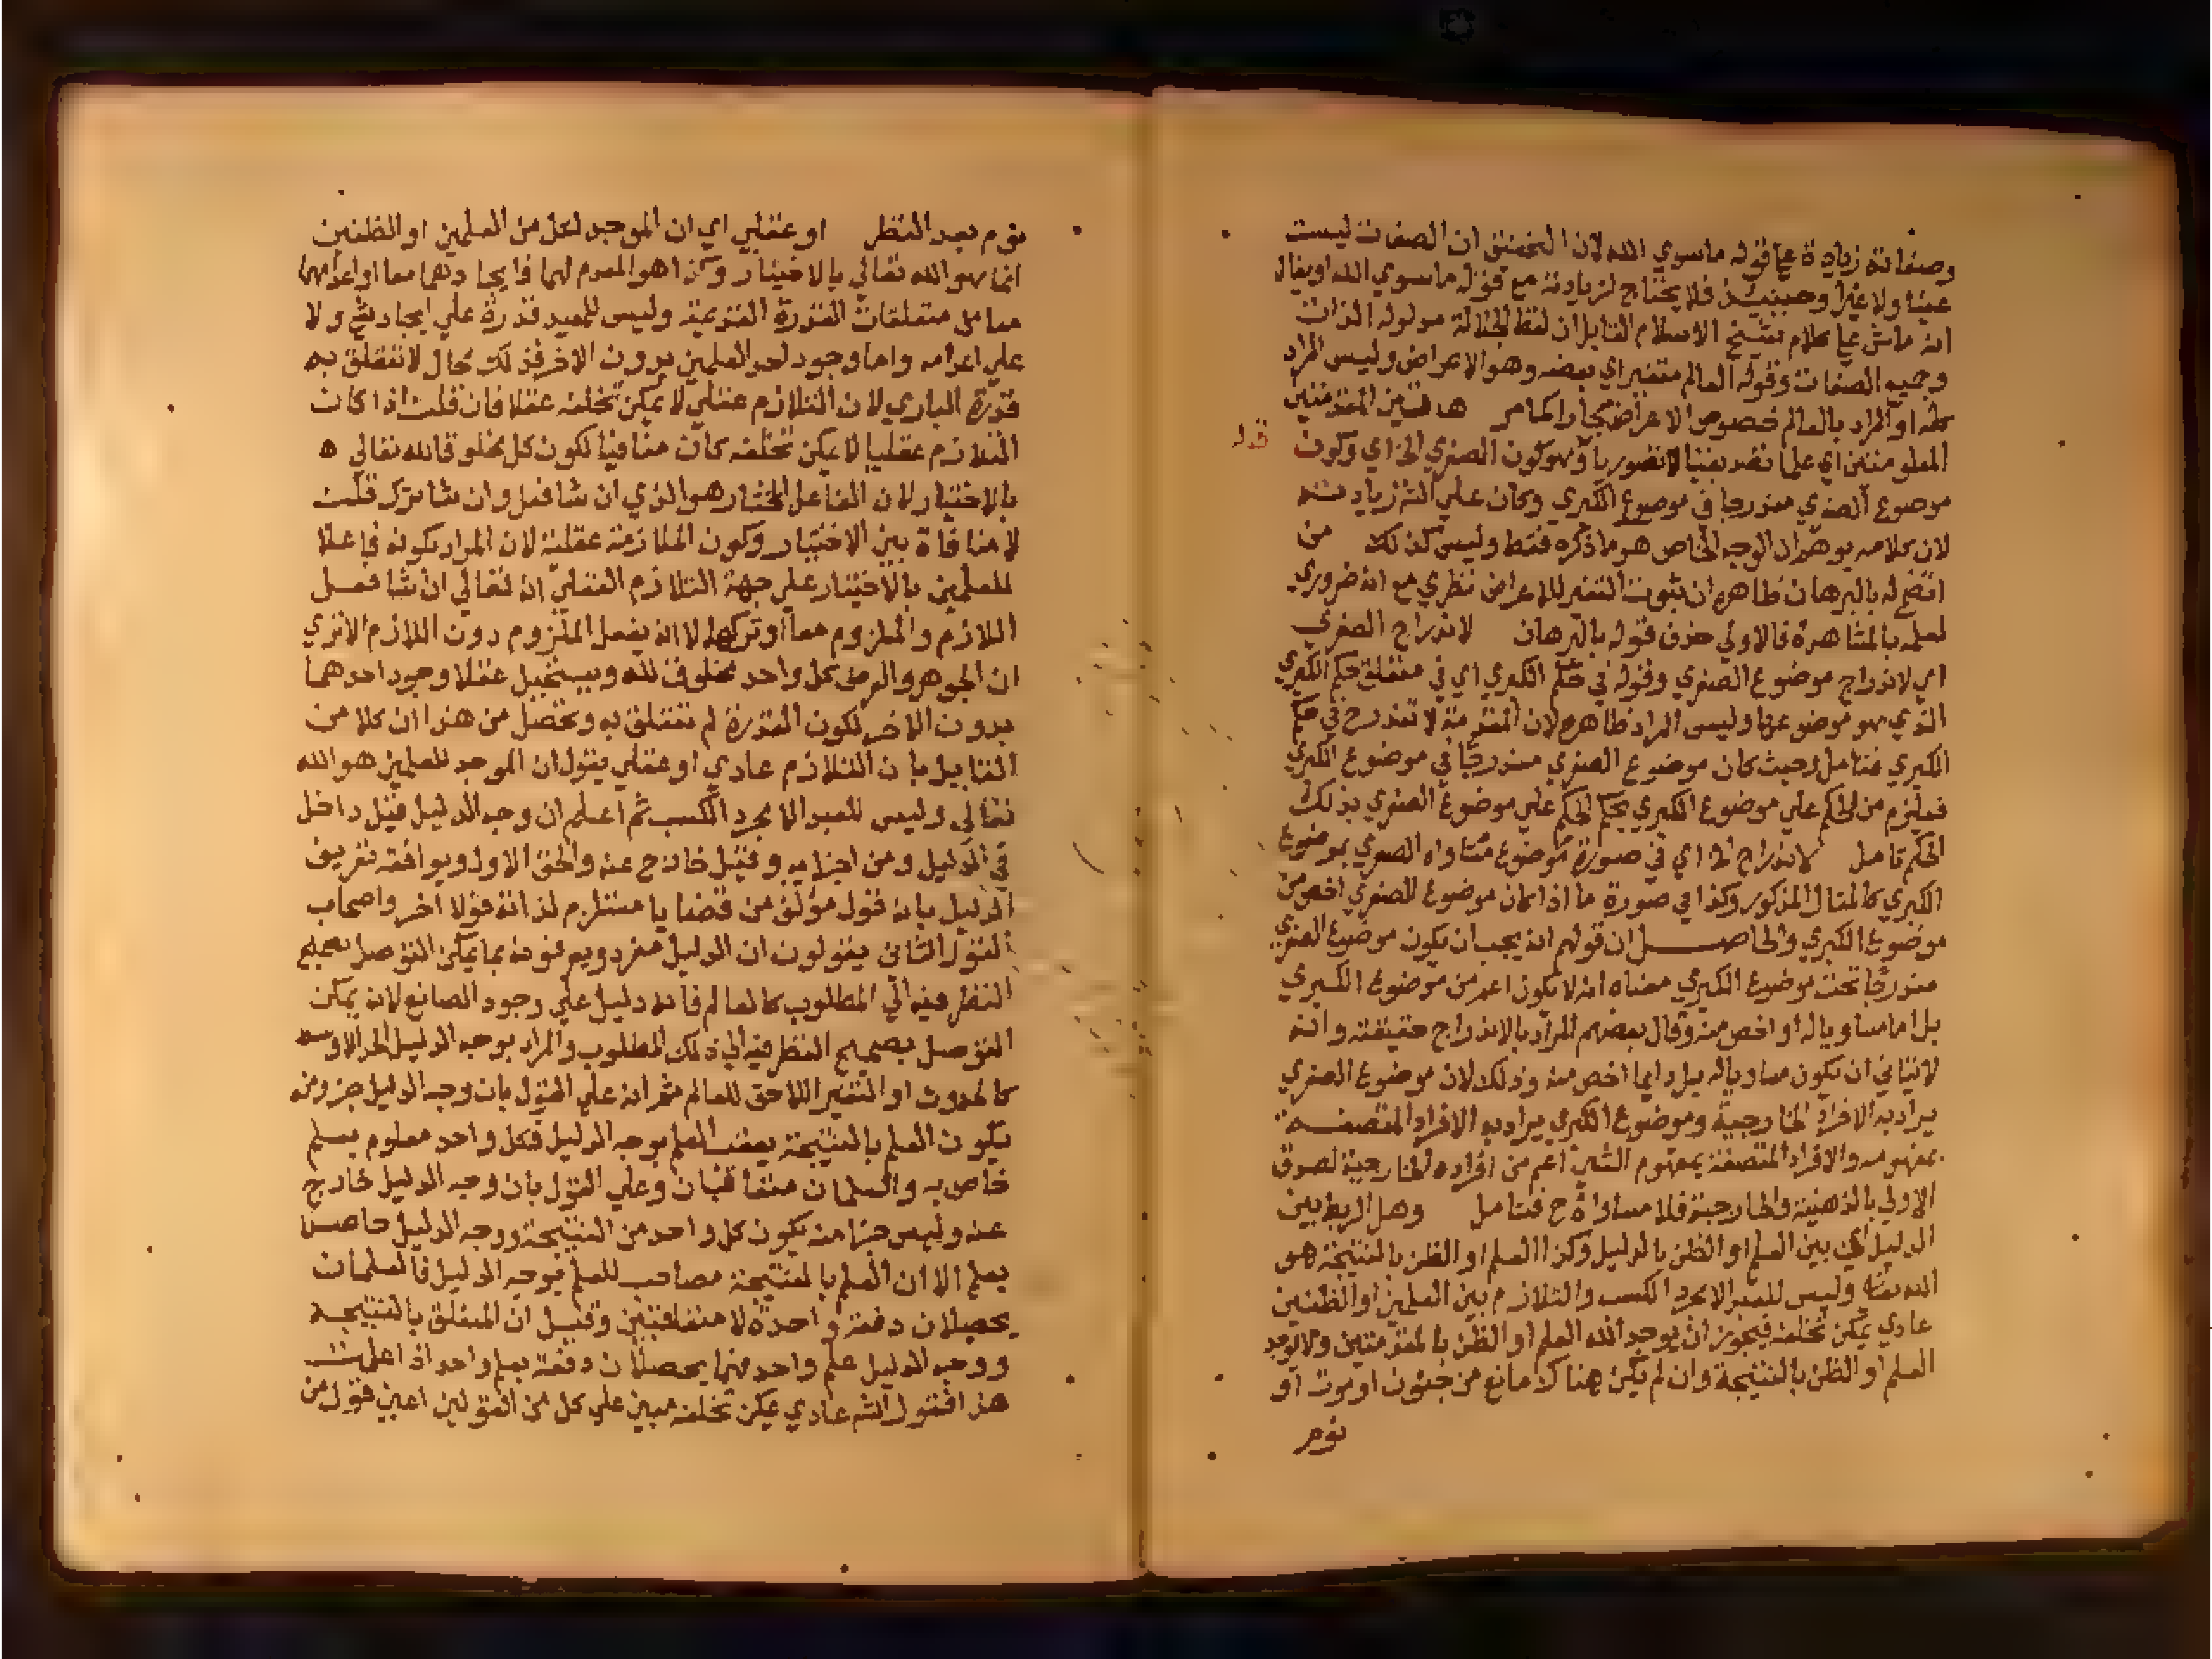 وصفاته زيادة على قوله ماسوي الله لان التحقيق ان الصفات ليست
عينا ولا غيرا وحينئذ فلا يحتاج لزيادته مع قوله ماسوي الله او يقال
انه ماش على كلام شيخ الاسلام القايل ان لفظ الجلالة مدلوله الذات
وجميع الصفات وقوله العالم متغير اي بعضه وهو الاعراض وليس المراد
كله او المراد بالعالم خصوص الاعراض مجازا كما مر هاتين المقدمتين
المعلومتين اي علما تصديقيا لا تصوريا وهو كون الصغري الخ اي وكون
قوله
موضوع الصغري مندرجا في موضوع الكبري وكان علي الش زيادته
لان كلامه يوهم ان الوجه الخاص هو ما ذكره فقط وليس كذلك من
اقتضح له بالبرهان ظاهره ان ثبوت التغير للاعراض نظري مع انه ضروري
لعلمه بالمشاهرة فالاولي حذف قوله بالبرهان لاندراج الصغري
اي لاندراج موضوع الصغري وقوله في حكم الكبري اي في متعلق حكم الكبري
الذي هو موضوعها وليس المراد ظاهره لان المقدمة لا تندرج في حكم
الكبري فتامل وحيث كان موضوع الصغري مندرجا في موضوع الكبري
فيلزم من الحكم علي موضوع الكبري بحكم الحكم علي موضوع الصغري بذلك
الحكم تامل لاندراج الخ اي في صورة موضوع مساواه الصغري بموضوع
الكبري كالمثال المذكور وكذا في صورة ما اذا كان موضوع للصغري اخص من
موضوع الكبري والحاصل ان قولهم انه يجب ان يكون موضوع الصغري
مندرجا تحت موضوع الكبري معناه انه لا يكون اعم من موضوع الكبري
بل اما مساويا له او اخص منه وقال بعضهم المراد بالاندراج حقيقته وانه
لا يتاتي ان يكون مساويا له بل دايما اخص منه وذلك لان موضوع الصغري
يراد به الافراد الخارجية وموضوع الكبري يراد به الافراد المتصفة
بمفهومه والافراد المتصفة بمفهوم الشي اعم من افراده الخارجية لصدق
الاولي بالذهنية والخارجية فلا مساواة ح فتامل وهل الربط بين
الدليل اي بين العلم او الظن بالدليل وكذا العلم او الظن بالنتيجة هو
الله تعا وليس للعبد الا مجرد الكسب والتلازم بين العلمين او الظنين
عادي يمكن تخلفه فيجوز ان يوجد الله العلم او الظن بالمقدمتين ولا يوجد
العلم او الظن بالنتيجة وان لم يكن هناك مانع من جنون او موت او
نوم
نوم بعد النظر او عقلي اي ان الموجد لكل من العلمين او الظنين
انما هو الله تعالي بالاختيار وكذا هو المعدم لهما فايجادهما معا او اعدامهما
معا من متعلقات القدرة القديمة وليس للعبد قدرة علي ايجاد شي ولا
علي اعدامه واما وجود احد العلمين بدون الاخر فذلك محال لا تتعلق به
قدرة الباري لان التلازم عقلي لا يمكن تخلفه عقلا فان قلت اذا كان
التلازم عقليا لا يمكن تخلفه كان منافيا لكون كل مخلوقا لله تعالي ه
بالاختيار لان الفاعل المختار هو الذي ان شا فعل وان شا ترك قلت
لا منافاة بين الاختيار وكون الملازمة عقلية لان المراد بكونه فاعلا
للعلمين بالاختيار علي جهة التلازم العقلي انه تعالي ان شا فعل
اللازم والملزوم معا او تركهما لا انه يفعل الملزوم دون اللازم الا تري
ان الجوهر والعرض كل واحد مخلوق لله ويستحيل عقلا وجود احدهما
بدون الاخر لكون القدرة لم تتعلق به وتحصل من هذا ان كلا من
القايل بان التلازم عادي او عقلي يقول ان الموجد للعلمين هو الله
تعالي وليس للعبد الا مجرد الكسب ثم اعلم ان وجه الدليل قيل داخل
في الدليل ومن اجزايه وقيل خارج عنه والحق الاول ويوافقه تعريف
الدليل بانه قول مؤلف من قضايا مستلزم لذاته قولا اخر واصحاب
القول الثاني يقولون ان الدليل مفرد ويعرفونه بما يمكن التوصل بصحيح
النظر فيه الي المطلوب كالعالم فانه دليل علي وجود الصانع لانه يمكن
التوصل بصحيح النظر فيه الي ذلك المطلوب والمراد بوجه الدليل الحد الاوسط
كالحدوث او التغير اللاحق للعالم ثم انه علي القول بان وجه الدليل جزء منه
يكون العلم بالنتيجة يعقب العلم بوجه الدليل فكل واحد معلوم بعلم
خاص به والعلمان متعاقبان وعلي القول بان وجه الدليل خارج
عنه وليس جزا منه يكون كل واحد من النتيجة ووجه الدليل حاصلا
بعلم الا ان العلم بالنتيجة مصاحب للعلم بوجه الدليل فالعلمان
يحصلان دفعة واحدة لا متعاقبين وقيل ان المتعلق بالنتيجة
ووجه الدليل علم واحد فهما يحصلان دفعة بعلم واحد اذا علمت
هذا فقول الش عادي يمكن تخلفه مبين علي كل من القولين اعني قول من